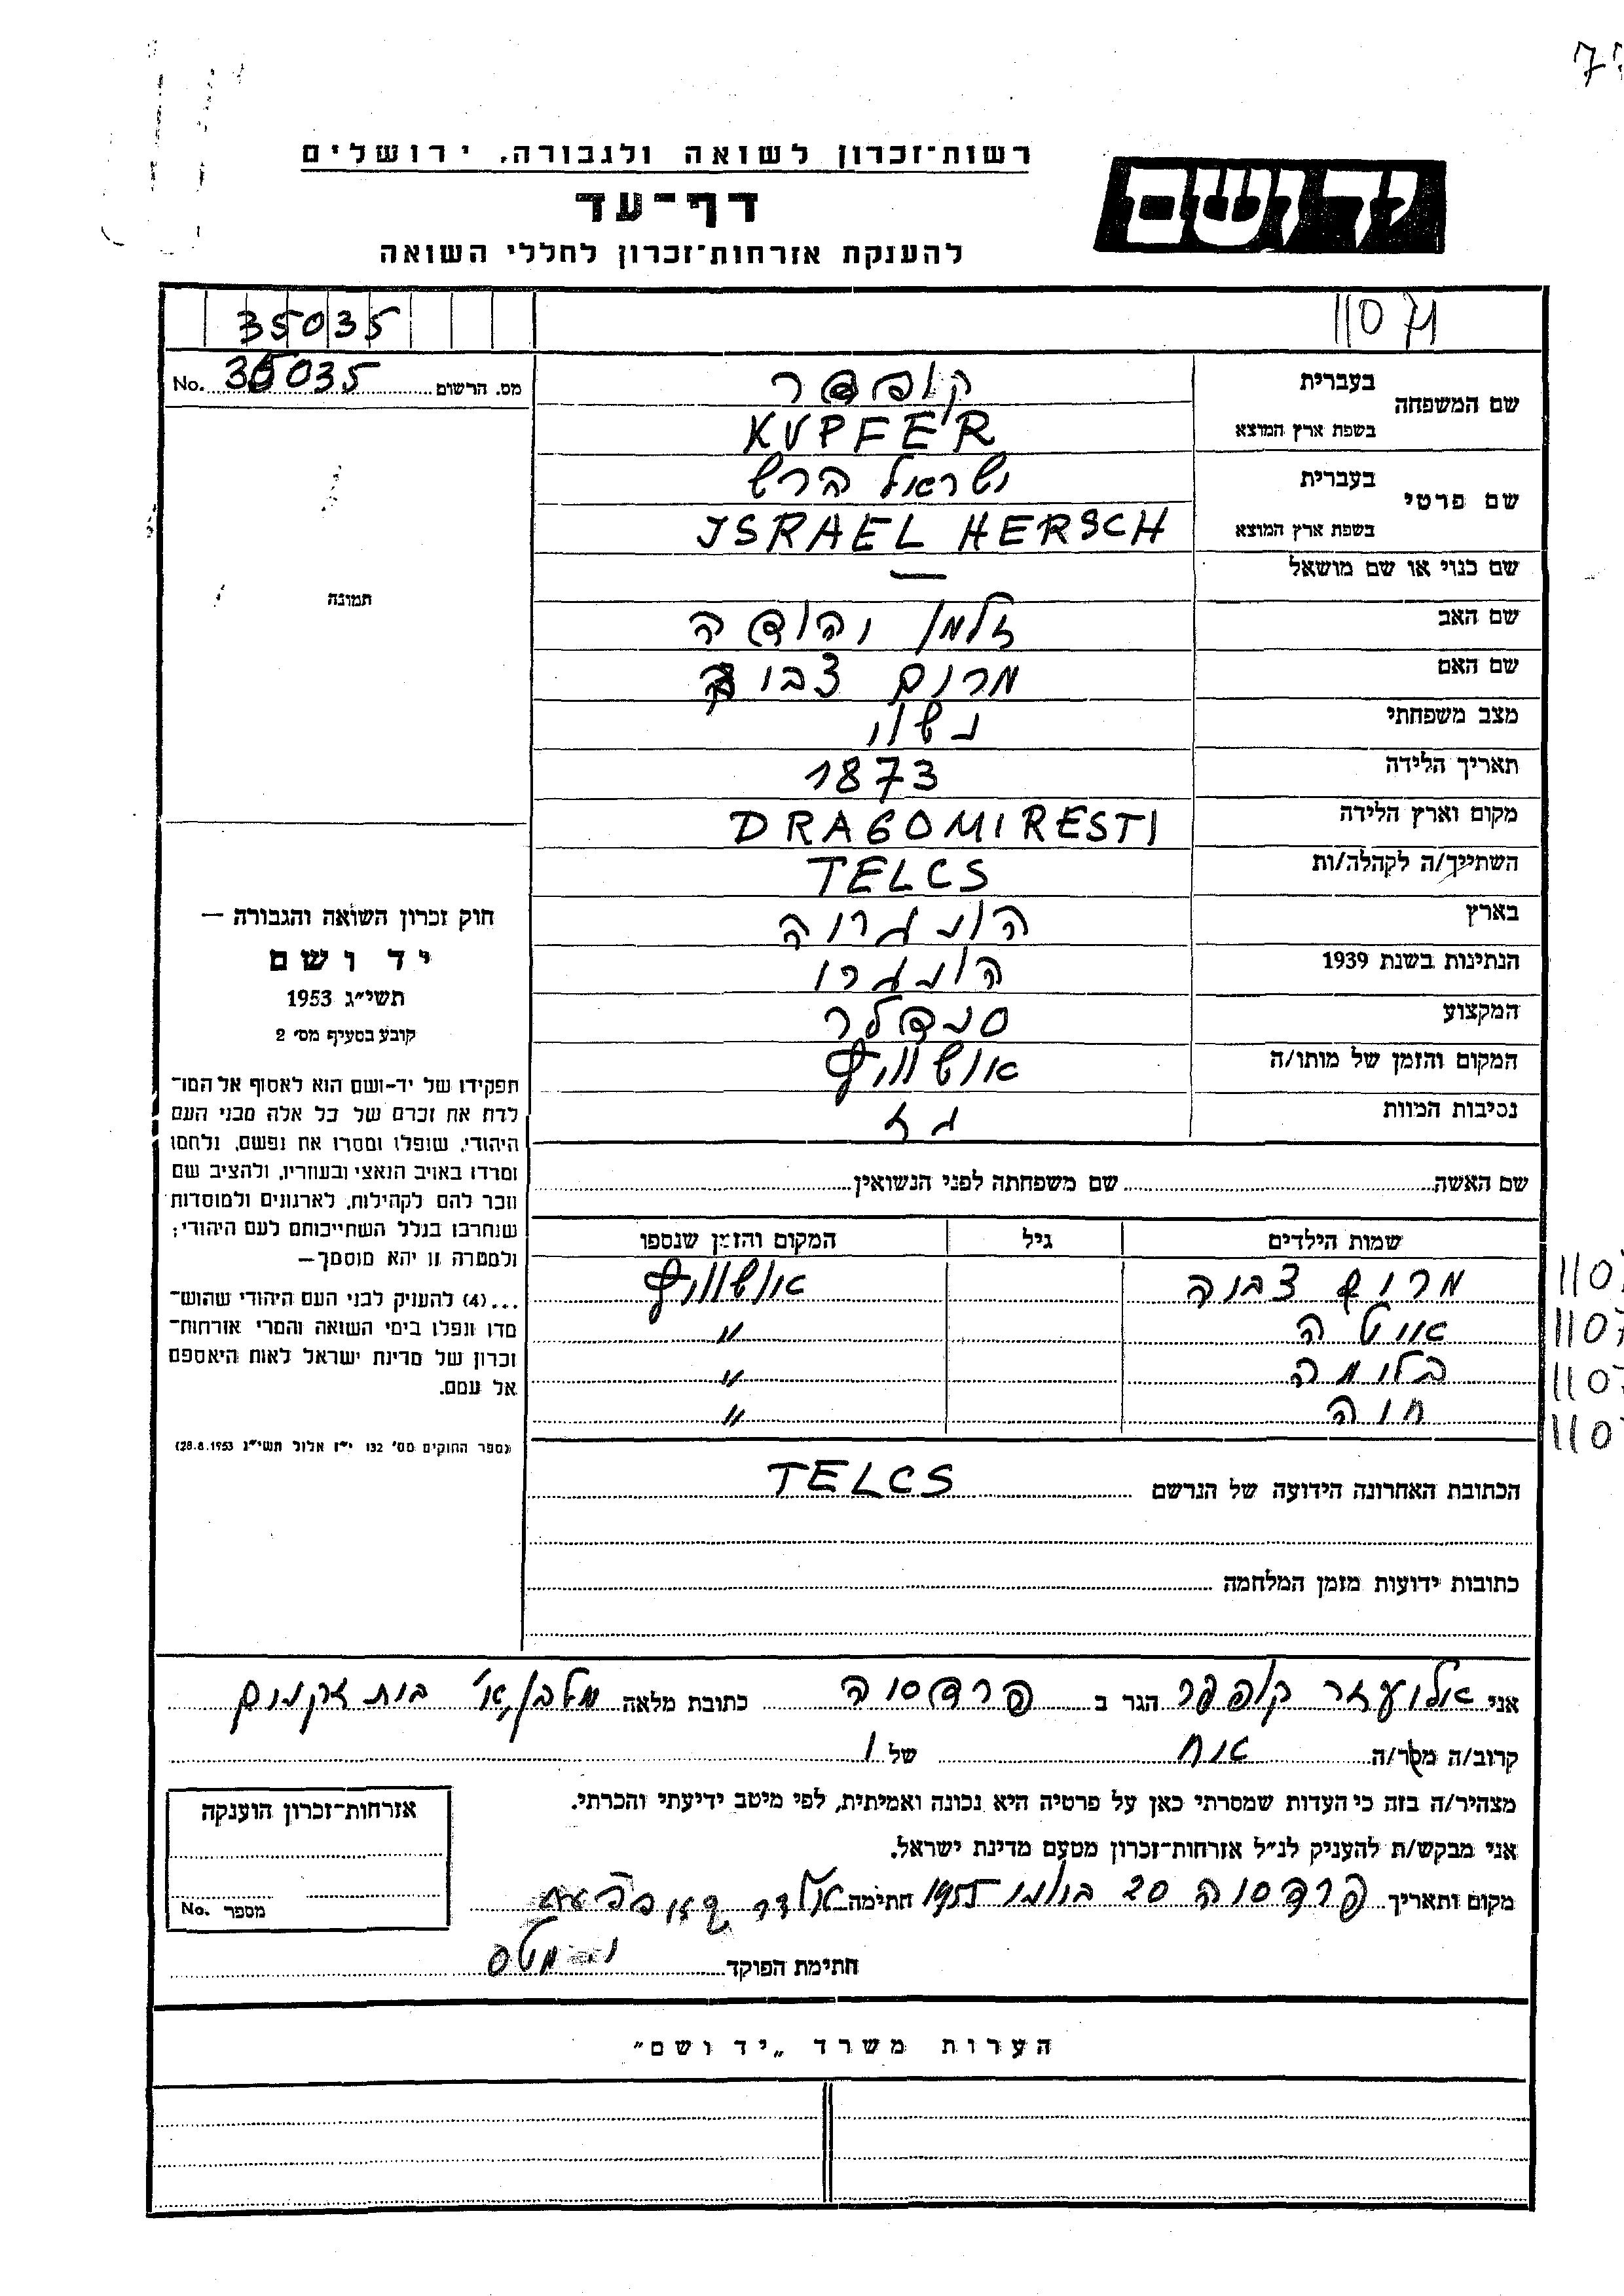 רשות־זכרון לשואה ולגבורה, ירושלים
יד ושם
דף־עד
להענקת אזרחות־זכרון לחללי השואה
35035
מס. הרשום 35035 No.
תמונה
שם המשפחה
בעברית קופפר
בשפת ארץ המוצא KUPFER
שם פרטי
בעברית ישראל הרש
בשפת ארץ המוצא ISRAEL HERSCH
שם כנוי או שם מושאל —
שם האב זלמן יהודה
שם האם מרים
מצב משפחתי נשוי
תאריך הלידה 1873
מקום וארץ הלידה DRAGOMIRESTI
השתייך/ה לקהלה/ות TELCS
בארץ הונגריה
הנתינות בשנת 1939 הונגרי
המקצוע סנדלר
המקום והזמן של מותו/ה אושוויץ
נסיבות המוות גז
חוק זכרון השואה והגבורה —
יד ושם
תשי״ג 1953
קובע בסעיף מס׳ 2
תפקידו של יד־ושם הוא לאסוף אל המו־
לדת את זכרם של כל אלה מבני העם
היהודי, שנפלו ומסרו את נפשם, נלחמו
ומרדו באויב הנאצי ובעוזריו, ולהציב שם
וזכר להם לקהילות, לארגונים ולמוסדות
שנחרבו בגלל השתייכותם לעם היהודי;
ולמטרה זו יהא מוסמך—
...(4) להענק לבני העם היהודי שהוש־
מדו ונפלו בימי השואה והמרי אזרחות־
זכרון של מדינת ישראל לאות היאספם
אל עמם.
(ספר החוקים מס׳ 132 י״ז אלול תשי״ג 28.8.1953)
שם האשה שם משפחתה לפני הנשואין
שמות הילדים גיל המקום והזמן שנספו
אושוויץ
איטה "
בלומה "
חוה "
הכתובת האחרונה הידועה של הנרשם TELCS
כתובות ידועות מזמן המלחמה
אני אליעזר קופפר הגר ב פרדסיה כתובת מלאה מלבן, בית זקנים
קרוב/ה מכר/ה אח של
מצהיר/ה בזה כי העדות שמסרתי כאן על פרטיה היא נכונה ואמיתית, לפי מיטב ידיעתי והכרתי.
אני מבקש/ת להעניק לנ״ל אזרחות־זכרון מטעם מדינת ישראל.
מקום ותאריך פרדסיה 20 1955 חתימה
חתימת הפוקד
אזרחות־זכרון הוענקה
מספר No.
הערות משרד „יד ושם״